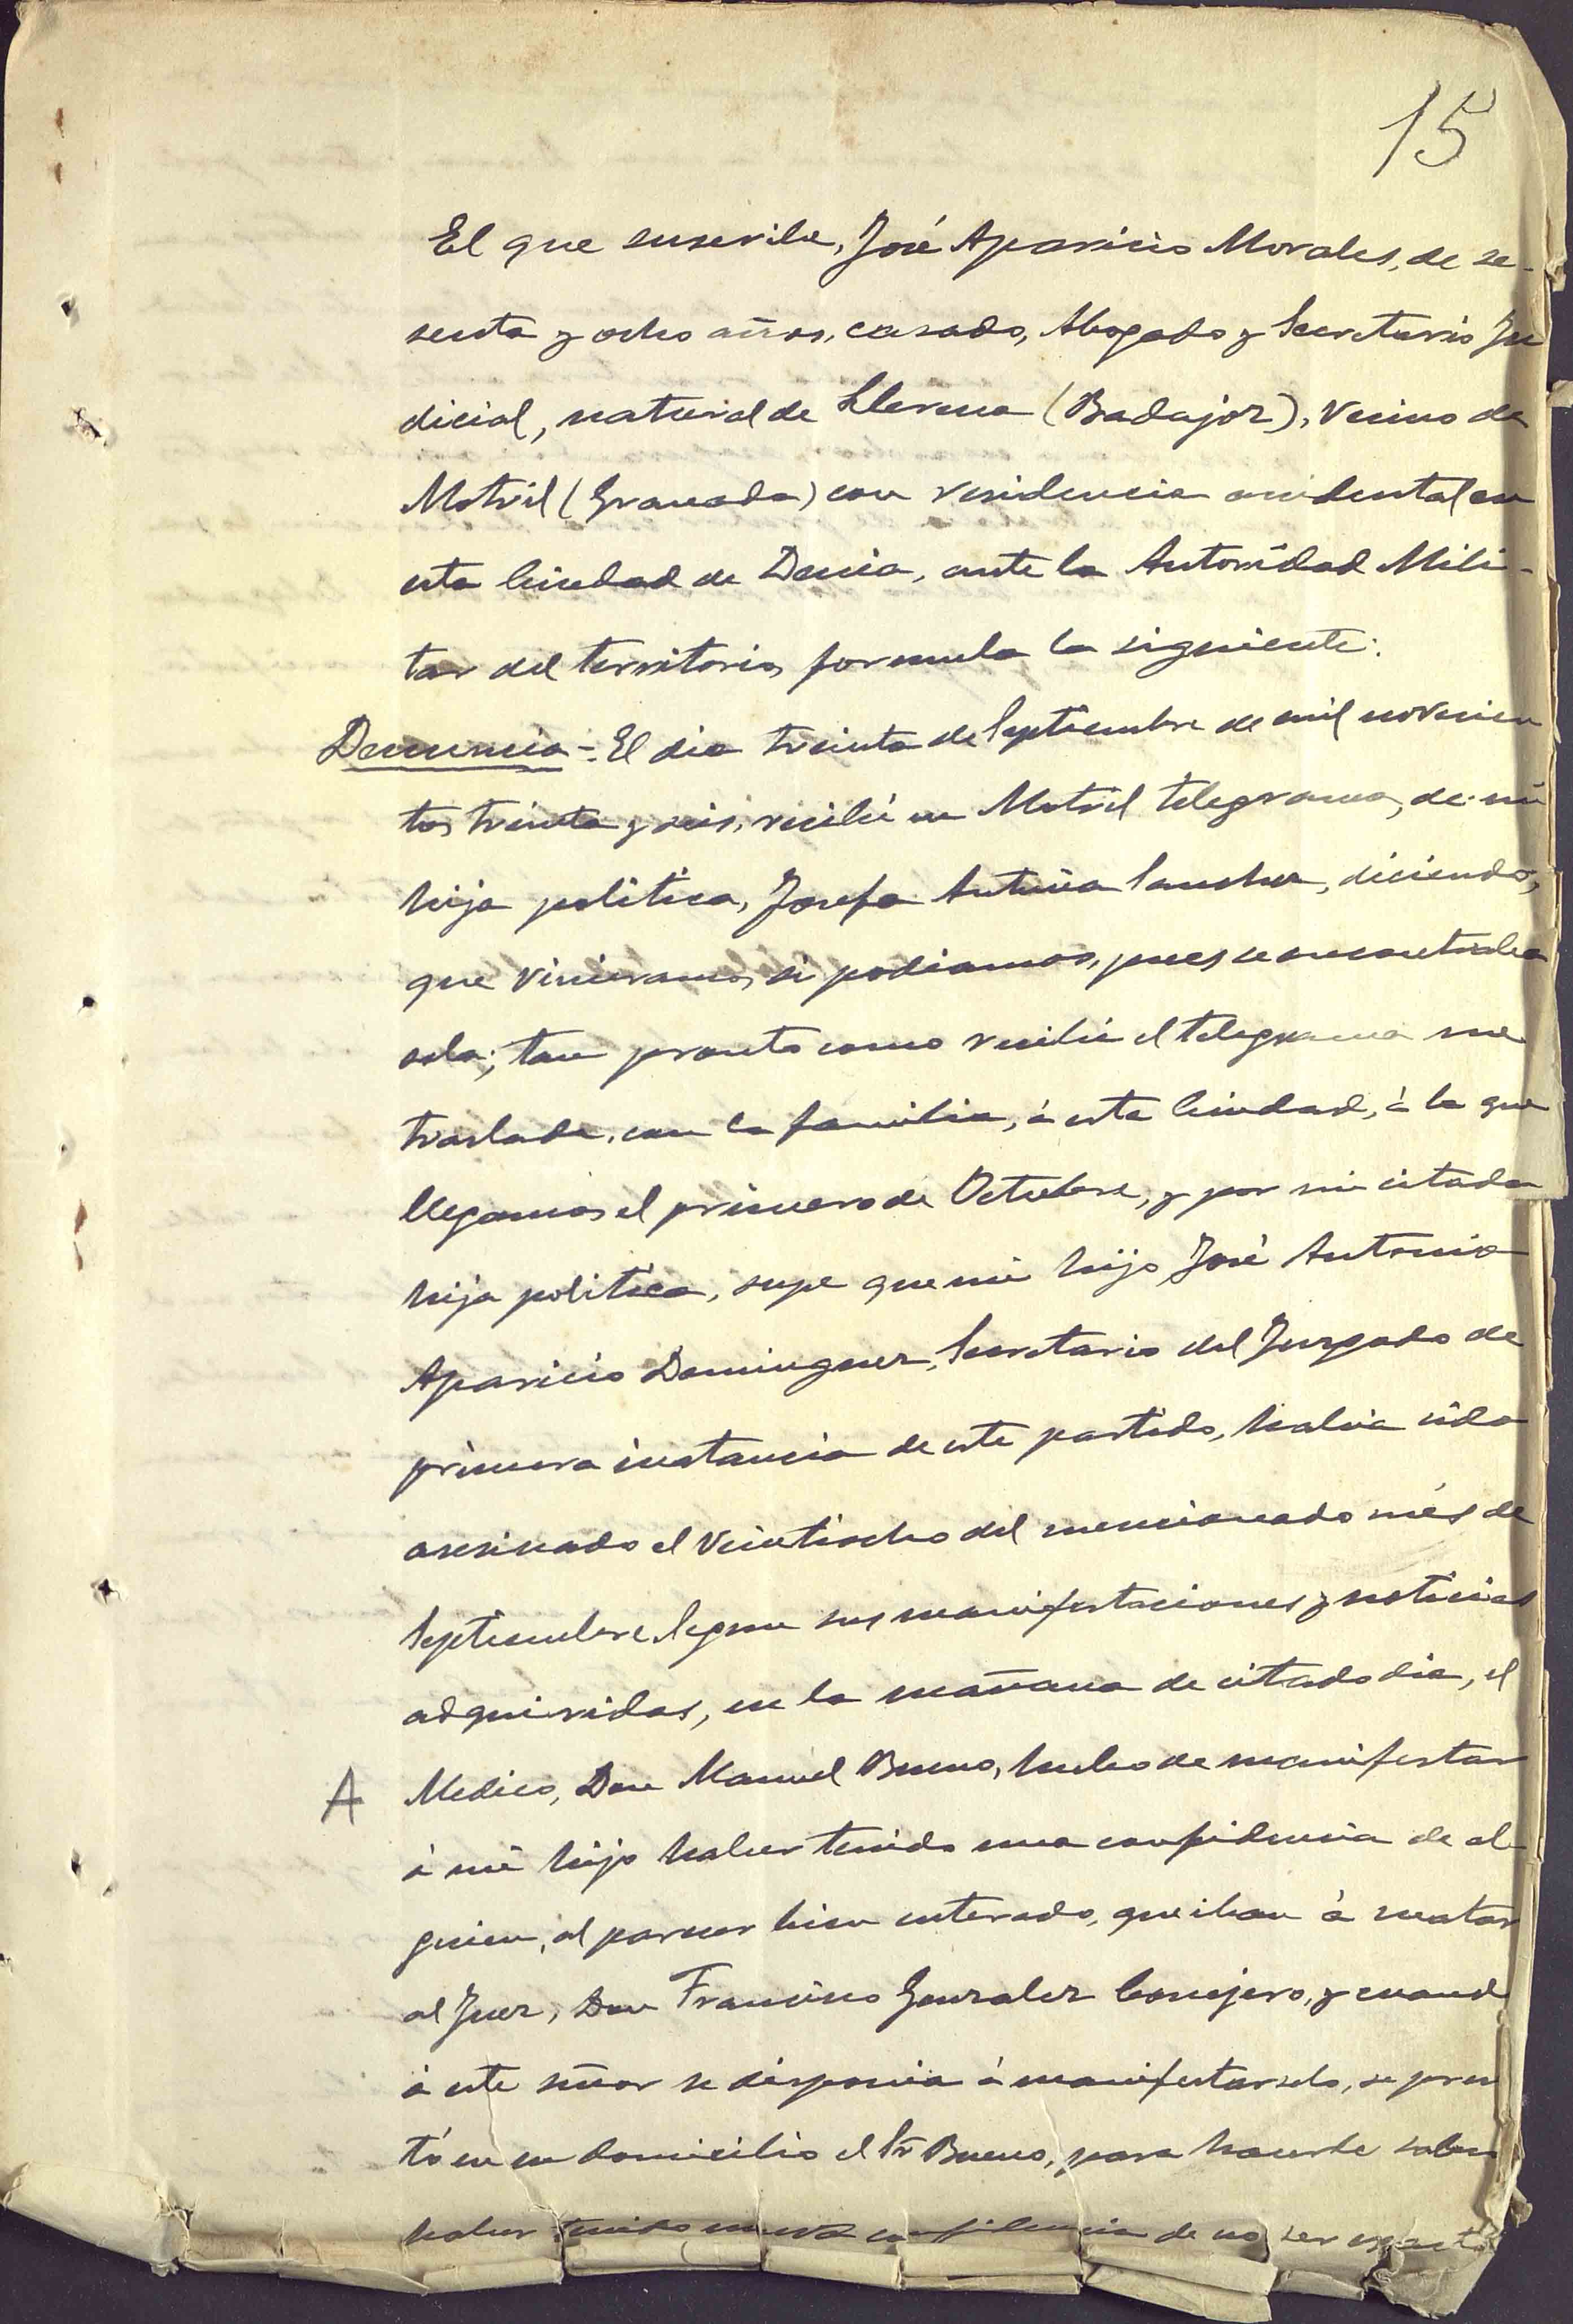 15
El que suscribe, José Aparicio Morales, de se-
senta y ocho años, casado, Abogado y Secretario Ju
dicial, natural de Llerena (Badajoz), vecino de
Motril (Granada) con residencia accidental en
esta Ciudad de Denia, ante la Autoridad Mili-
tar del territorio, formula la siguiente:
Denuncia = El dia treinta de Septiembre de mil novecien
tos treinta y seis, recibí en Motril telegrama, de mi
hija politica, Josefa Antuña Sanchez, diciendo,
que vinieramos, si podiamos, pues se encontraba
sola; tan pronto como recibi el telegrama me
traslade, con la familia, á esta Ciudad, á la que
llegamos el primero de Octubre, y por mi citada
hija politica, supe que mi hijo, José Antonio
Aparicio Dominguez, Secretario del Juzgado de
primera instancia de este partido, habia sido
asesinado el veintiocho del mencionado més de
Septiembre Segun sus manifestaciones y noticias
adquiridas, en la mañana de citado dia, el
A Medico, Don Manuel Bueno, hubo de manifestar
á mi hijo haber tenido una confidencia de al
guien, al parecer bien enterado, que iban á matar
al Juez, Don Francisco Gonzalez Conejero, y cuand
á este señor se disponia á manifestarselo, se presen
tó en su domicilio el Sr Bueno, para hacerle saber
haber tenido nueva confidencia de no ser exacto